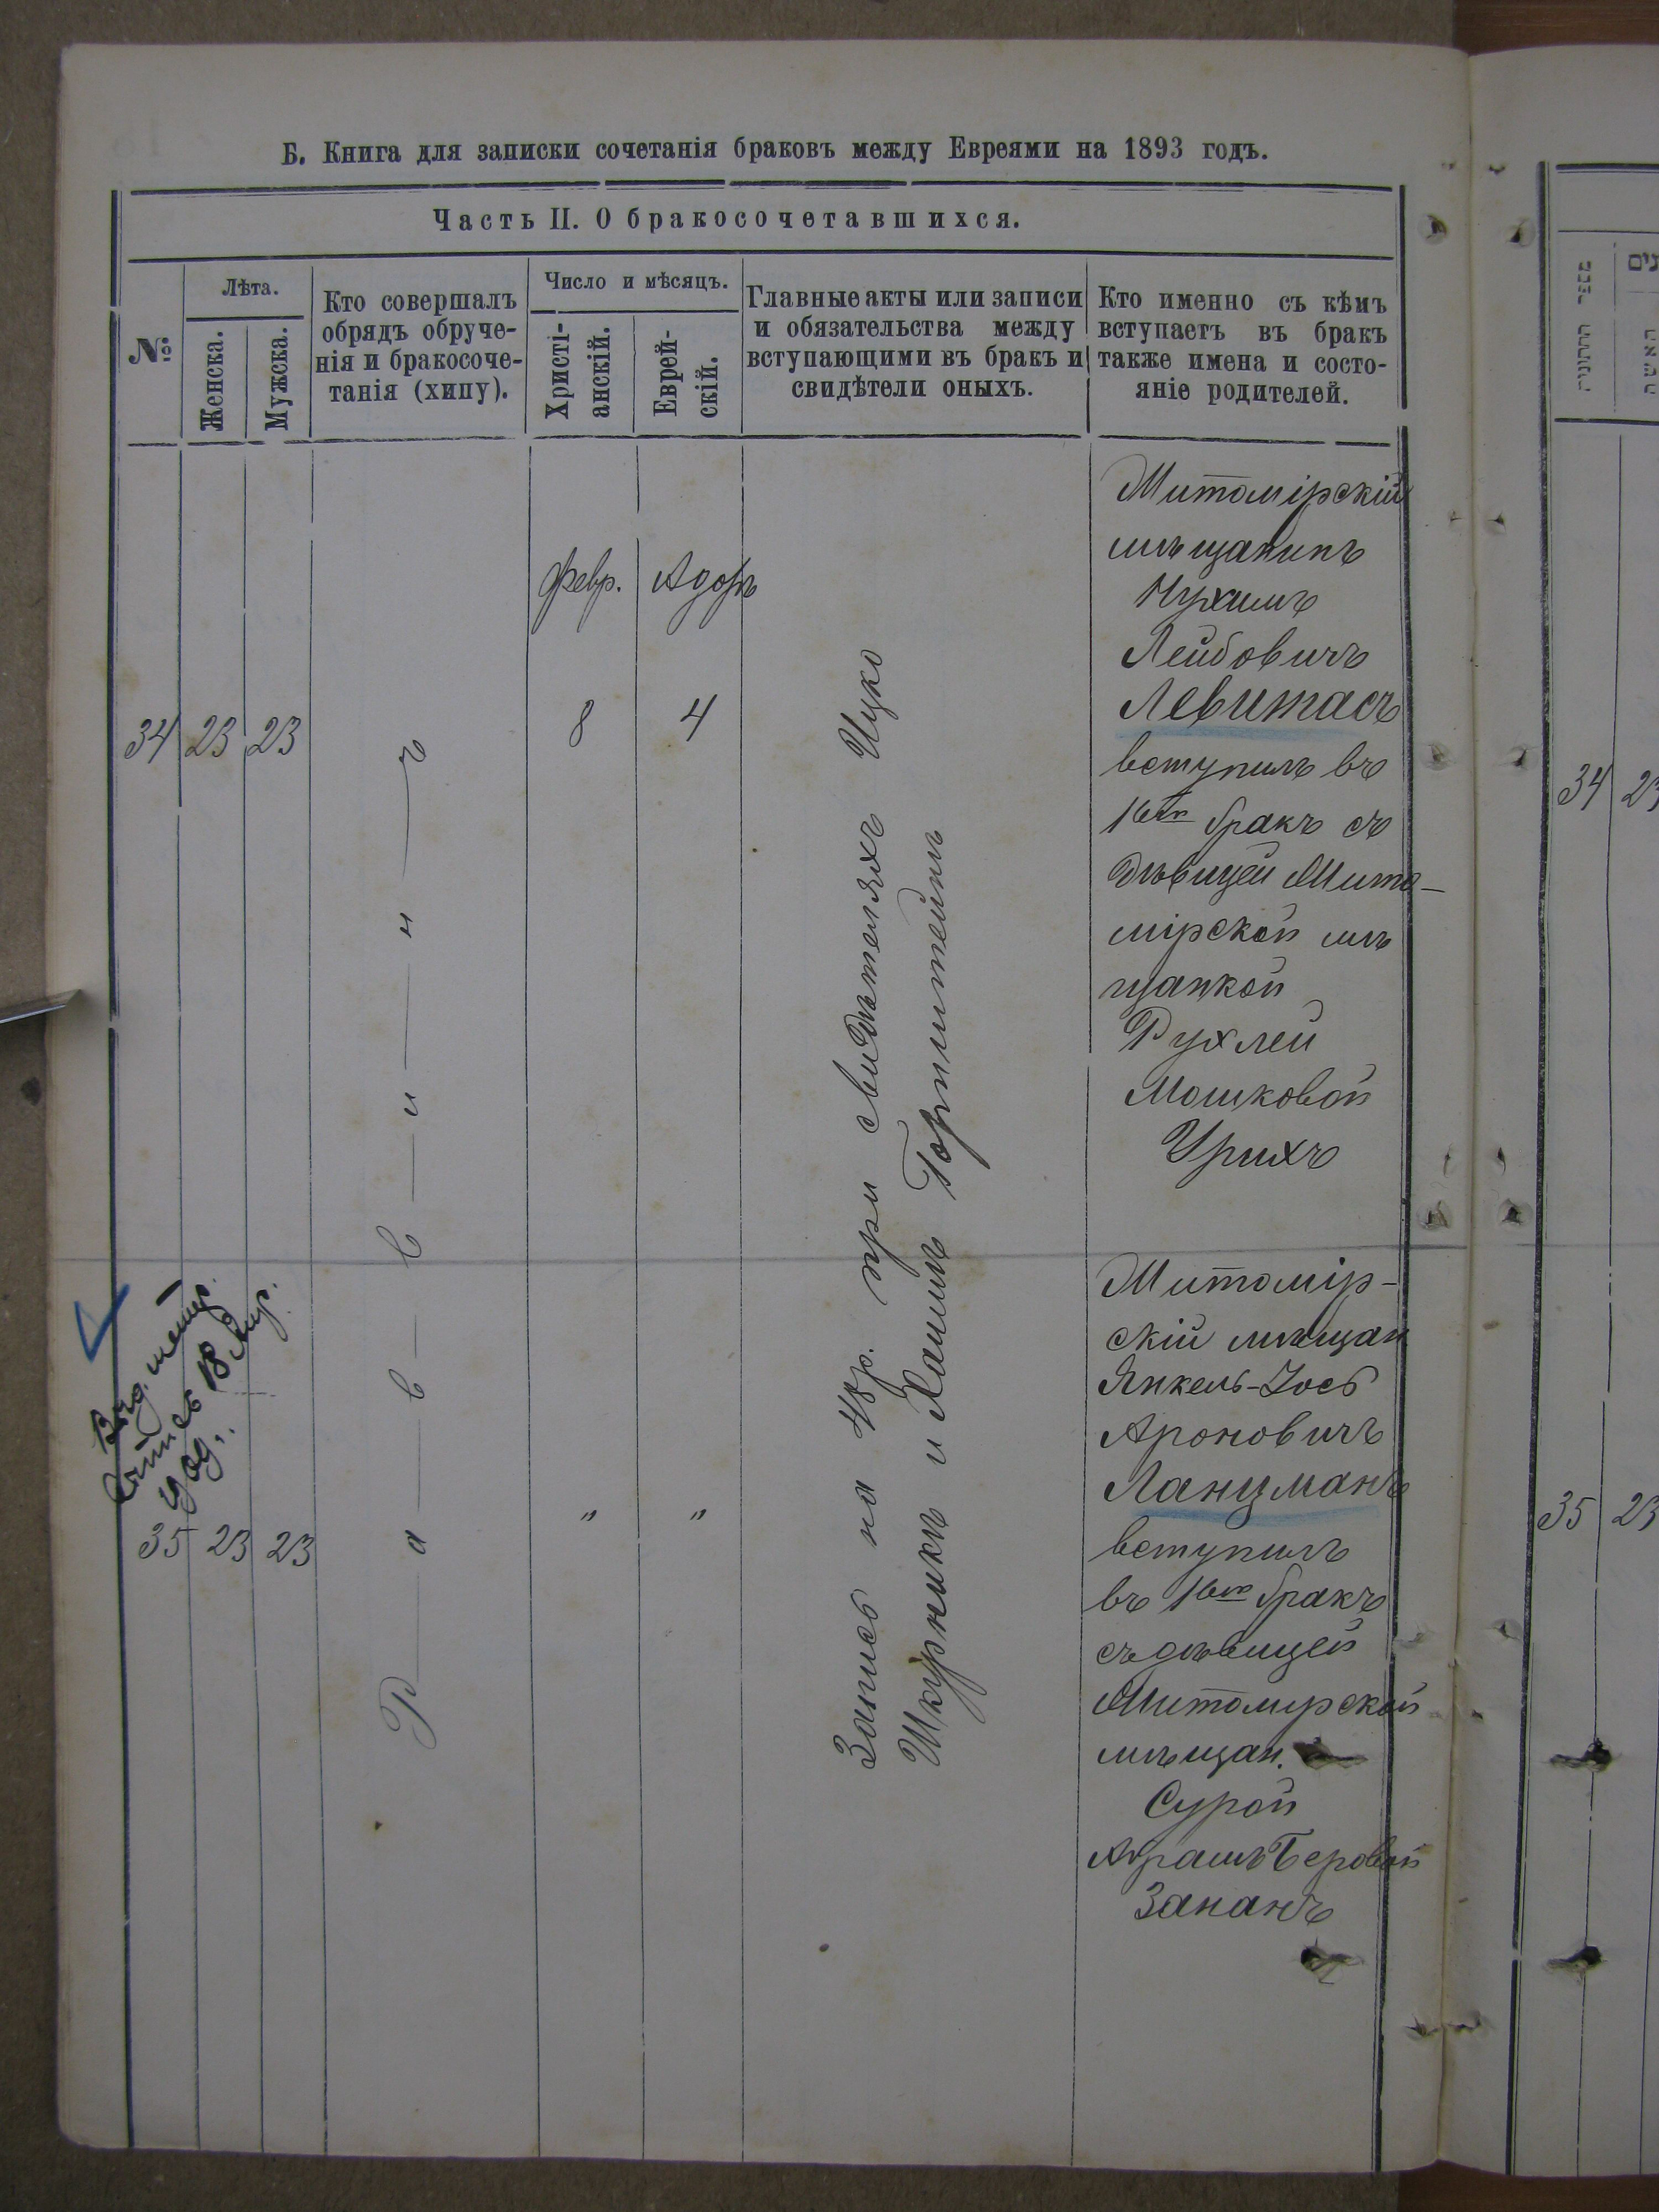 Б. Книга для записки сочетанія браковъ между Евреями на 1893 годъ.
Часть II. О бракосочетавшихся.
№
Лѣта.
Женска.
Мужска.
Кто совершалъ
обрядъ обруче-
нія и бракосоче-
танія (хипу).
Число и мѣсяцъ.
Христі-
анскій.
Еврей-
скій.
Главные акты или записи
и обязательства между
вступающими въ бракъ и
свидѣтели оныхъ.
Кто именно съ кѣмъ
вступаетъ въ бракъ
также имена и состо-
яніе родителей.
34 23 23
Февр. Адоръ
8 4
Р—а—в—в—и—н—ъ
Запись на 48 р. при свидѣтеляхъ Ицко
Шкурникъ и Хаимъ Горнштейнъ
Житомірскій
мѣщанинъ
Нухимъ
Лейбовичъ
Левитасъ
вступилъ въ
1вый бракъ съ
дѣвицей Жито-
мірской мѣ
щанкой
Рухлей
Мошковой
Урихъ
35 23 23
" "
Житомір-
скій мѣщан
Янкель-Іось
Ароновичъ
Ланцманъ
вступилъ
въ 1вый бракъ
съ дѣвицей
Житомирской
мѣщан.
Сурой
Абрамъ Беровой
Закакъ
34 23
35 23